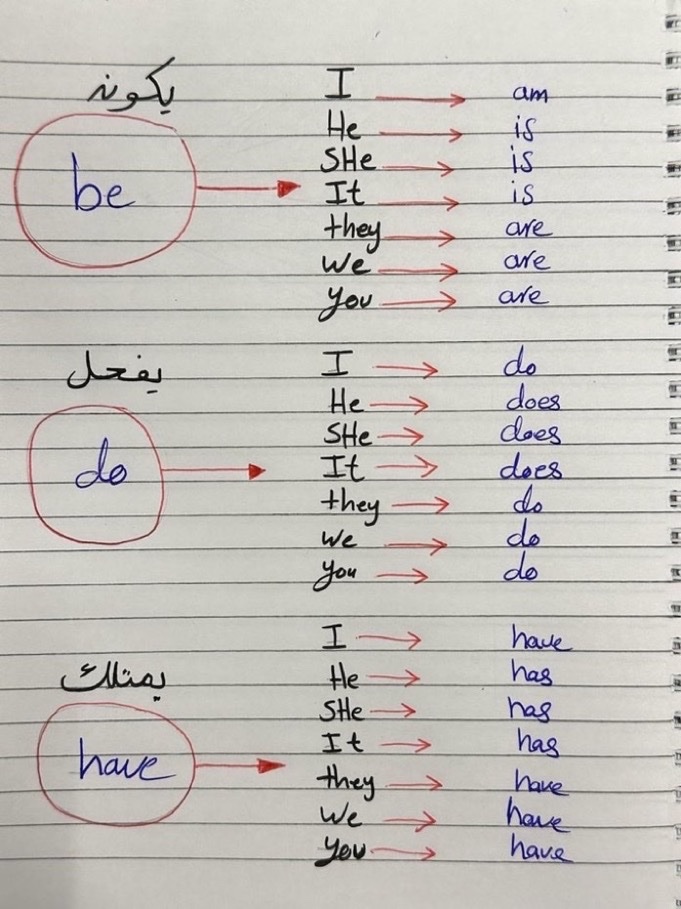 يكون
be
I → am
He → is
SHe → is
It → is
they → are
we → are
you → are
يفعل
do
I → do
He → does
SHe → does
It → does
they → do
we → do
you → do
يمتلك
have
I → have
He → has
SHe → has
It → has
they → have
we → have
you → have